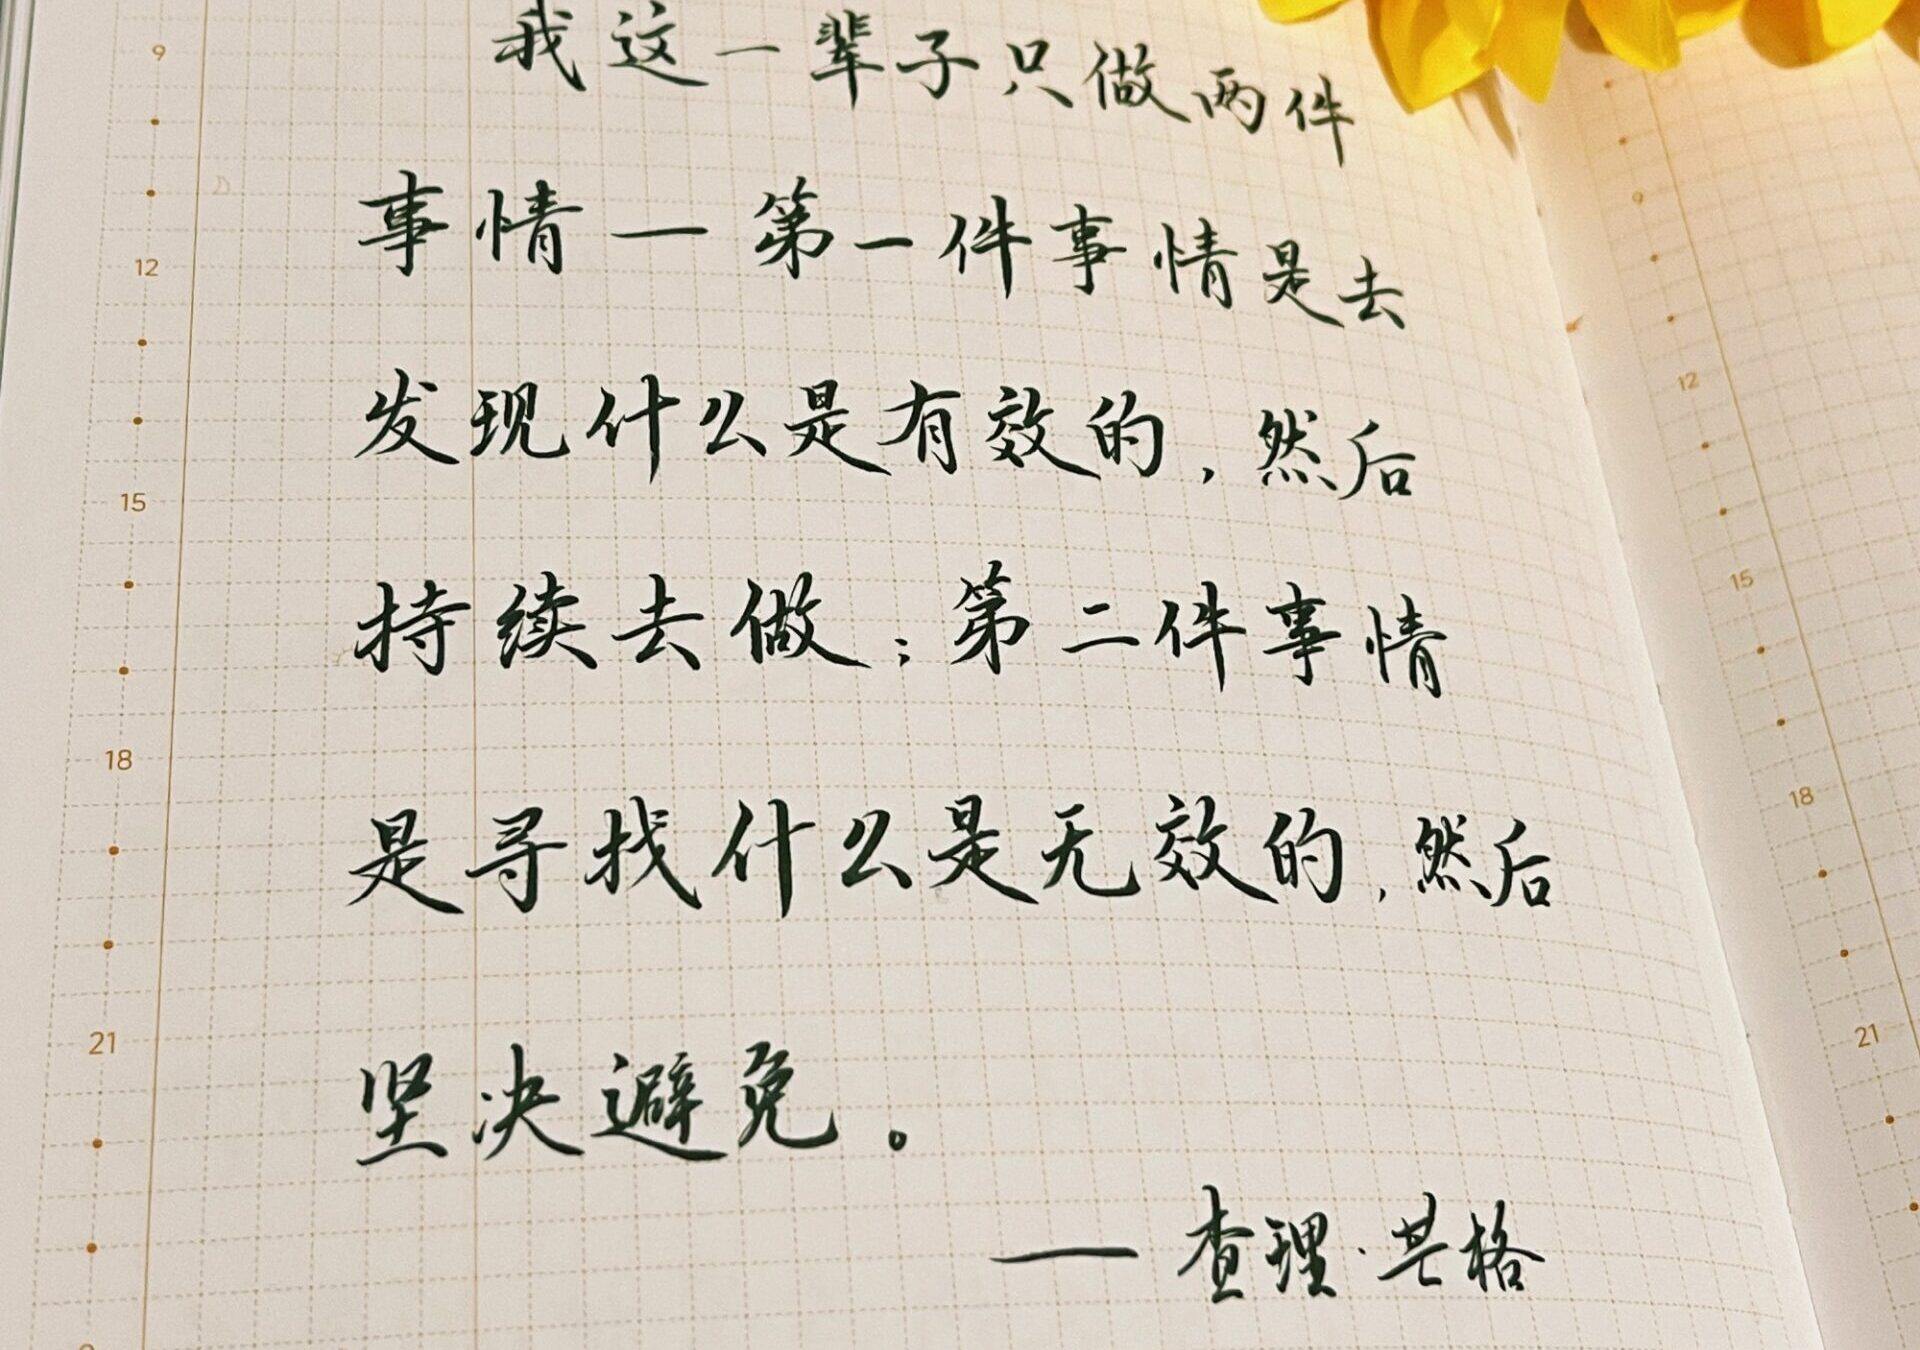 我这一辈子只做两件
事情—第一件事情是去
发现什么是有效的，然后
持续去做；第二件事情
是寻找什么是无效的，然后
坚决避免。
——查理·芒格
9
12
15
18
21
9
12
15
18
21